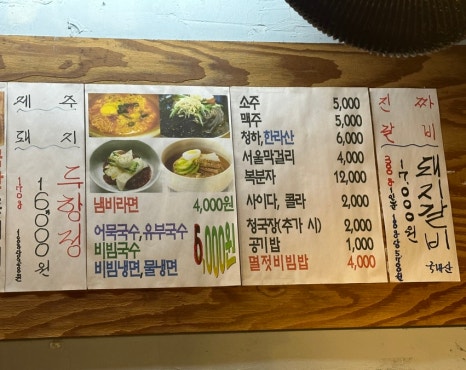 제주
돼지
두항정
16,000원
냄비라면 4,000원
어묵국수,유부국수
비빔국수
비빔냉면,물냉면
6,000원
소주 5,000
맥주 5,000
청하,한라산 6,000
서울막걸리 4,000
복분자 12,000
사이다, 콜라 2,000
청국장(추가 시) 2,000
공기밥 1,000
멸젓비빔밥 4,000
진짜
갈비
돼지갈비
17,000원